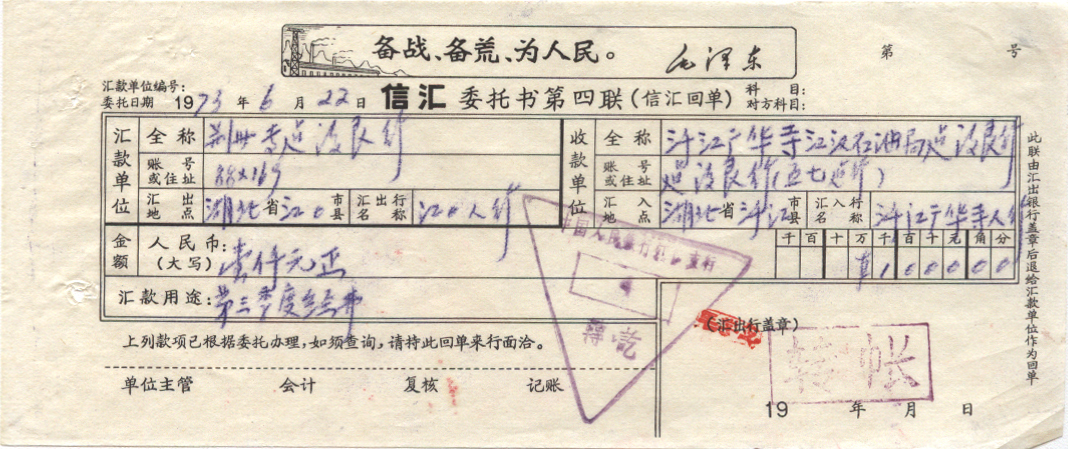 备战、备荒、为人民。
毛泽东
第 号
汇款单位编号：
委托日期 1973 年 6 月 22 日
信汇 委托书第四联（信汇回单）
科 目：
对方科目：
汇款单位
全称 荆州专
账号或住址 88×169
汇出地点 湖北省江口 市县
汇出行名称 江口人行
收款单位
全称 江广华寺江汉石油局
账号或住址 （五七
汇入地点 湖北省 江 市县
汇入行名称 江广华寺人行
金额
人民币：
（大写） 壹仟元正
千百十万千百十元角分
¥100000
汇款用途：第三季度经费
上列款项已根据委托办理，如须查询，请持此回单来行面洽。
单位主管 会计 复核 记账
（汇出行盖章）
转帐
19 年 月 日
此联由汇出银行盖章后退给汇款单位作为回单
中国人民银行
转讫